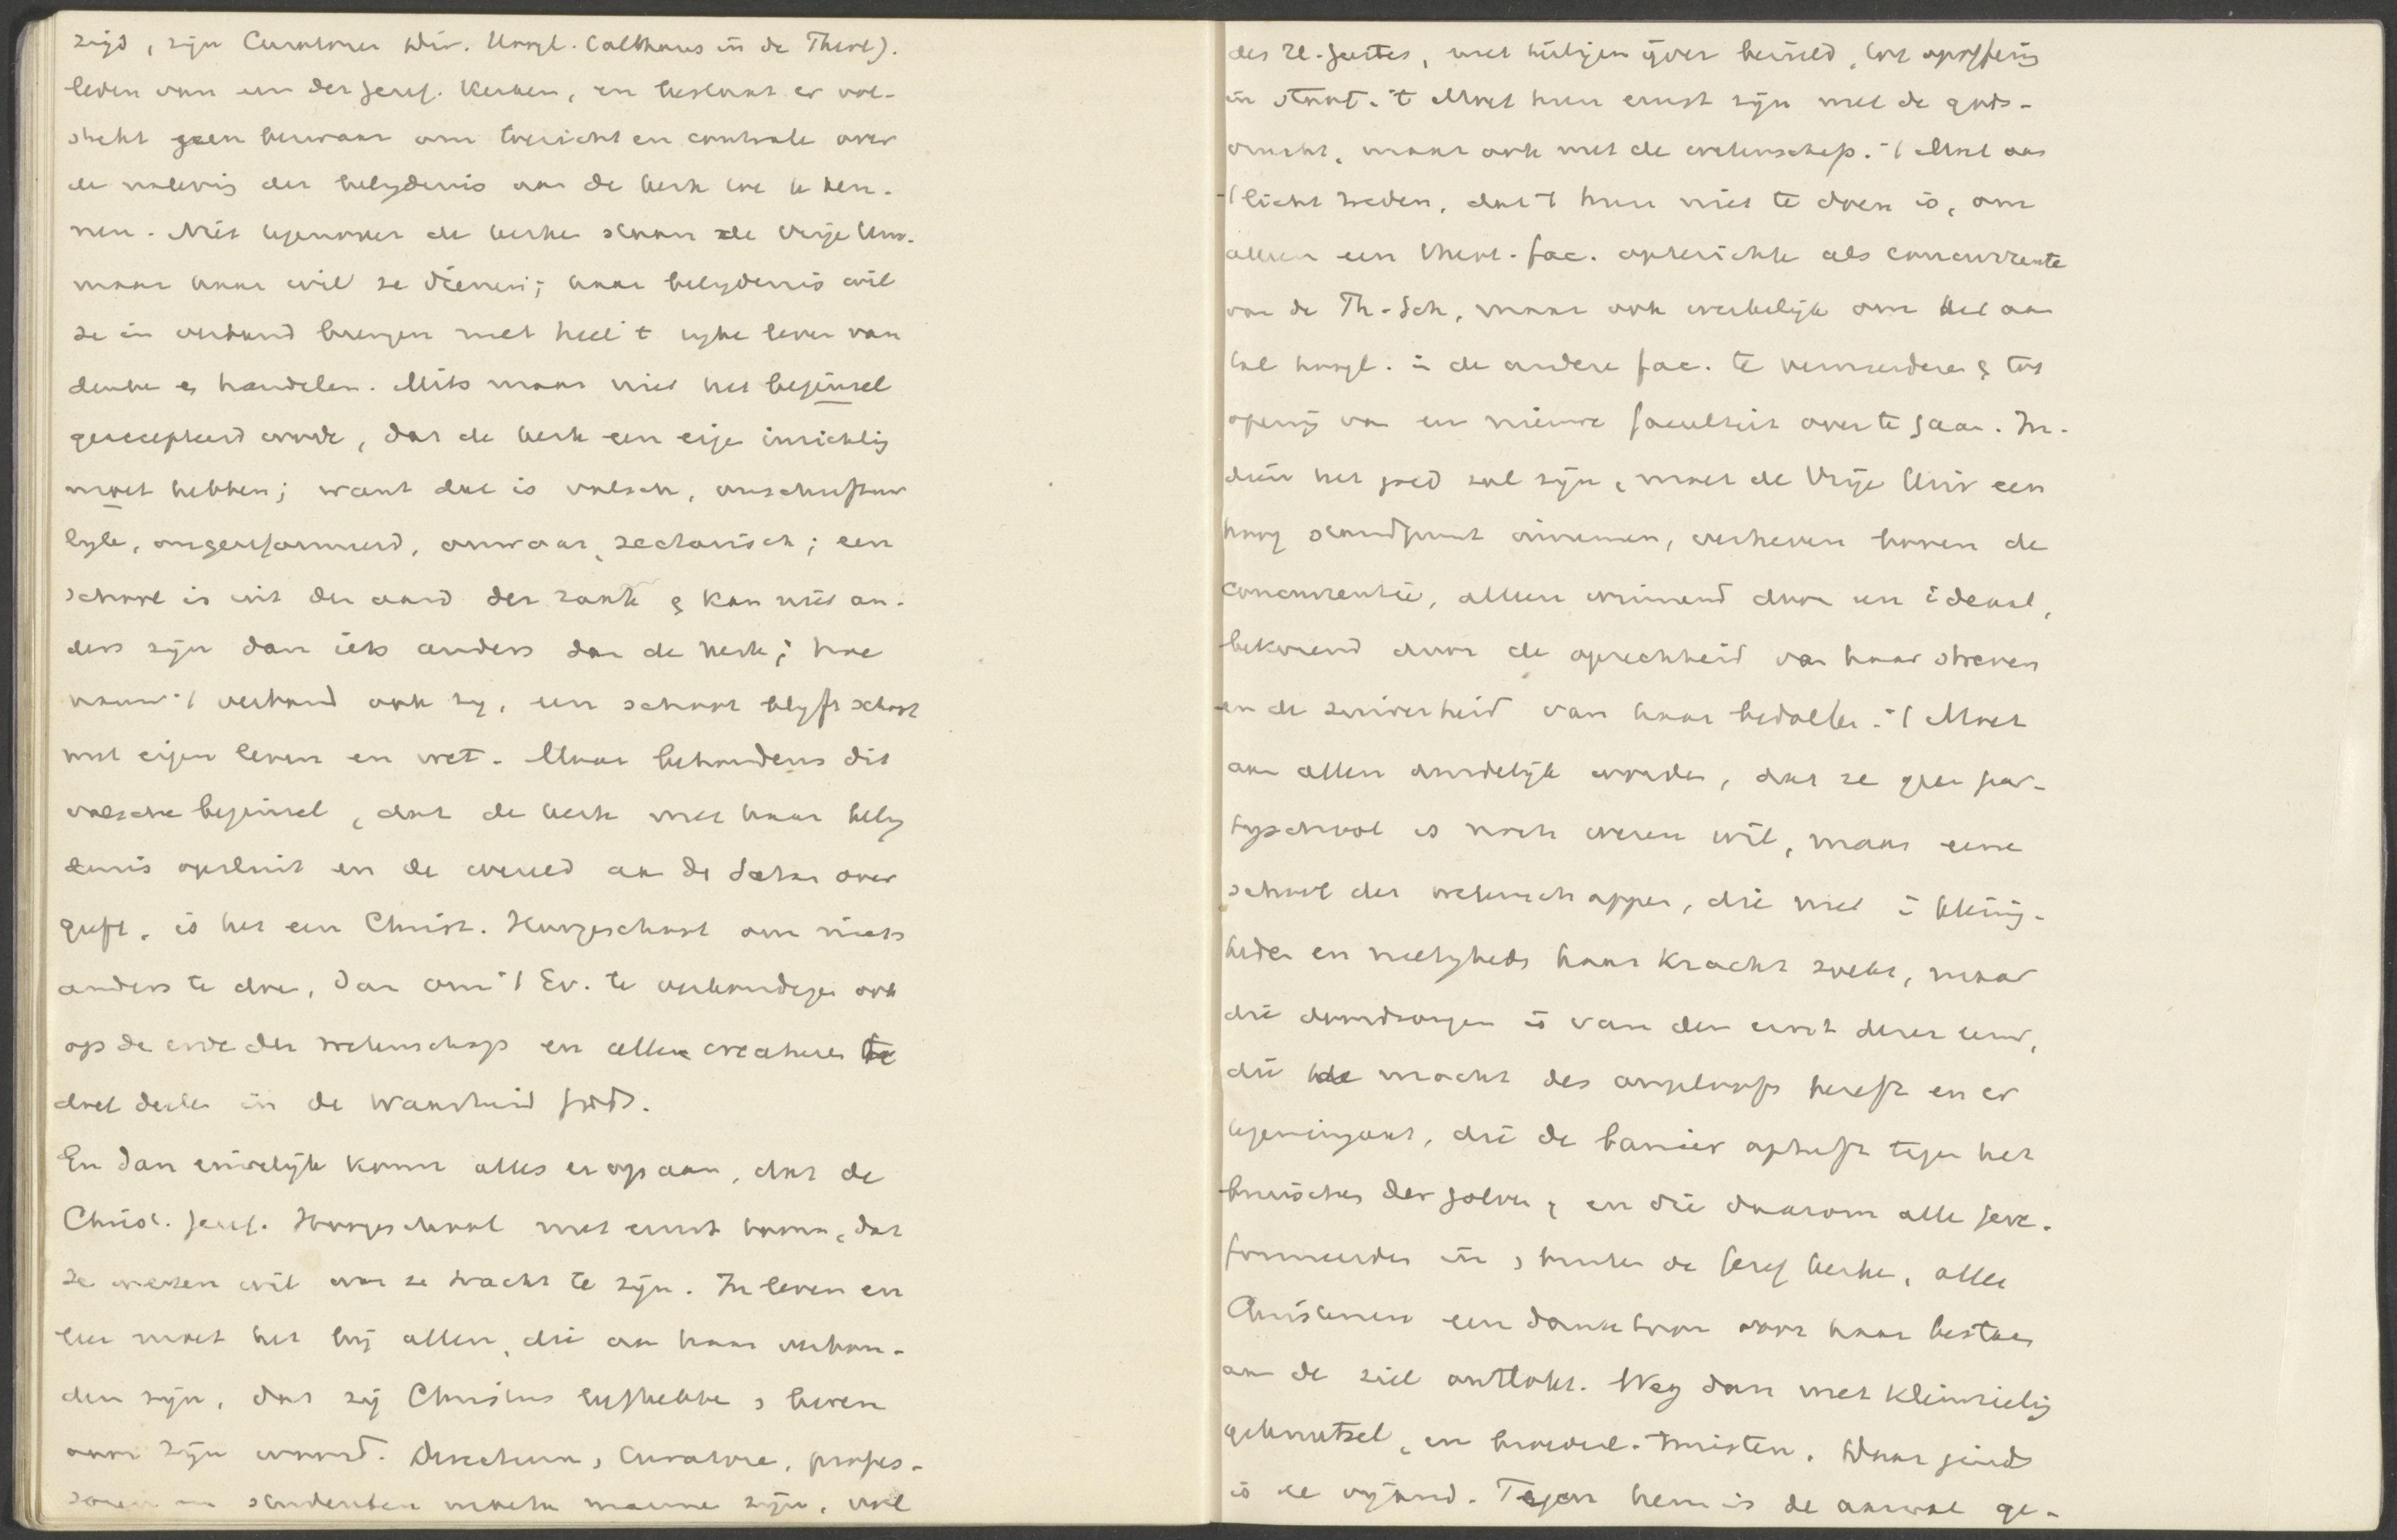 zijd, zijn Curatoren Dir. Hoogl. (althans in de Theol).
leden van een der geref. Kerken, en bestaat er vol-
strekt geen bezwaar om toezicht en controle over
de naleving der belydenis aan de kerk toe te ken-
nen. Niet tegenover de kerken staan de Vrije Univ.
maar haar wil ze dienen; haar belydenis wil
ze in verband brengen met heel 't rijke leven van
denken en handelen. Mits maar niet het beginsel
geaccepteerd worde, dat de kerk een eigen inrichting
moet hebben; want dat is valsch, onschriftuur
lyk, ongereformeerd, onwaar, sectarisch; een
school is uit den aard der zaak & kan niet an-
ders zijn dan iets anders dan de kerk; hoe
nauw 't verband ook zy, een school blyft school
met eigen leven en wet. Maar behoudens dit
valsche beginsel, dat de kerk met haar bely
denis opsluit en de wereld aan de Satan over
geeft, is het een Christ. Hoogeschool om niets
anders te doen, dan om 't Ev. te verkondigen ook
op de erve der wetenschap en alle creaturen te
doen deelen in de waarheid Gods.
En dan eindelijk komt alles er op aan, dat de
Christ. geref. Hoogeschool met ernst toone, dat
ze wezen wil wat ze tracht te zijn. In leven en
leer moet het bij allen, die aan haar verbon-
den zijn, dat zij Christus liefhebben & beven
voor zijn woord. Directeuren, Curatoren, profes-
soren en studenten moeten mannen zijn, vol
des H. Geestes, met heiligen ijver bezield, tot opoffering
in staat. 't Moet hun ernst zijn met de gods-
vrucht, maar ook met de wetenschap. 't Moet aan
't licht treden, dat 't hun niet te doen is, om
alleen een theol. fac. op te richten als concurrente
van de Th. Sch, maar ook werkelijk om het aan
tal hoogl. in de andere fac. te vermeerderen & tot
opening van een nieuwe faculteit over te gaan. In-
dien het goed zal zijn, moet de Vrije Univ een
hoog standpunt innemen, verheven boven de
concurrentie, alleen winnend door een ideaal,
bekorend door de oprechtheid van haar streven
en de zuiverheid van haar bedoelen. 't Moet
aan allen duidelijk worden, dat ze geen par-
tyschool is noch wezen wil, maar eene
school der wetenschappen, die niet in kleinig-
heden en nietigheds haar kracht zoekt, maar
die doordrongen is van den ernst dezer eeuw,
die de macht des ongeloofs beseft en er
tegeningaat, die de banier opheft tegen het
bruischen der golven, en die daarom alle gere-
formeerden in & buiten de Geref kerken, alle
Christenen een danktoon voor haar bestaan
aan de ziel ontlokt. Weg dan met kleinzielig
geknutsel, en broeder-twisten. Daar ginds
is de vijand. Tegen hem is de aanval ge-